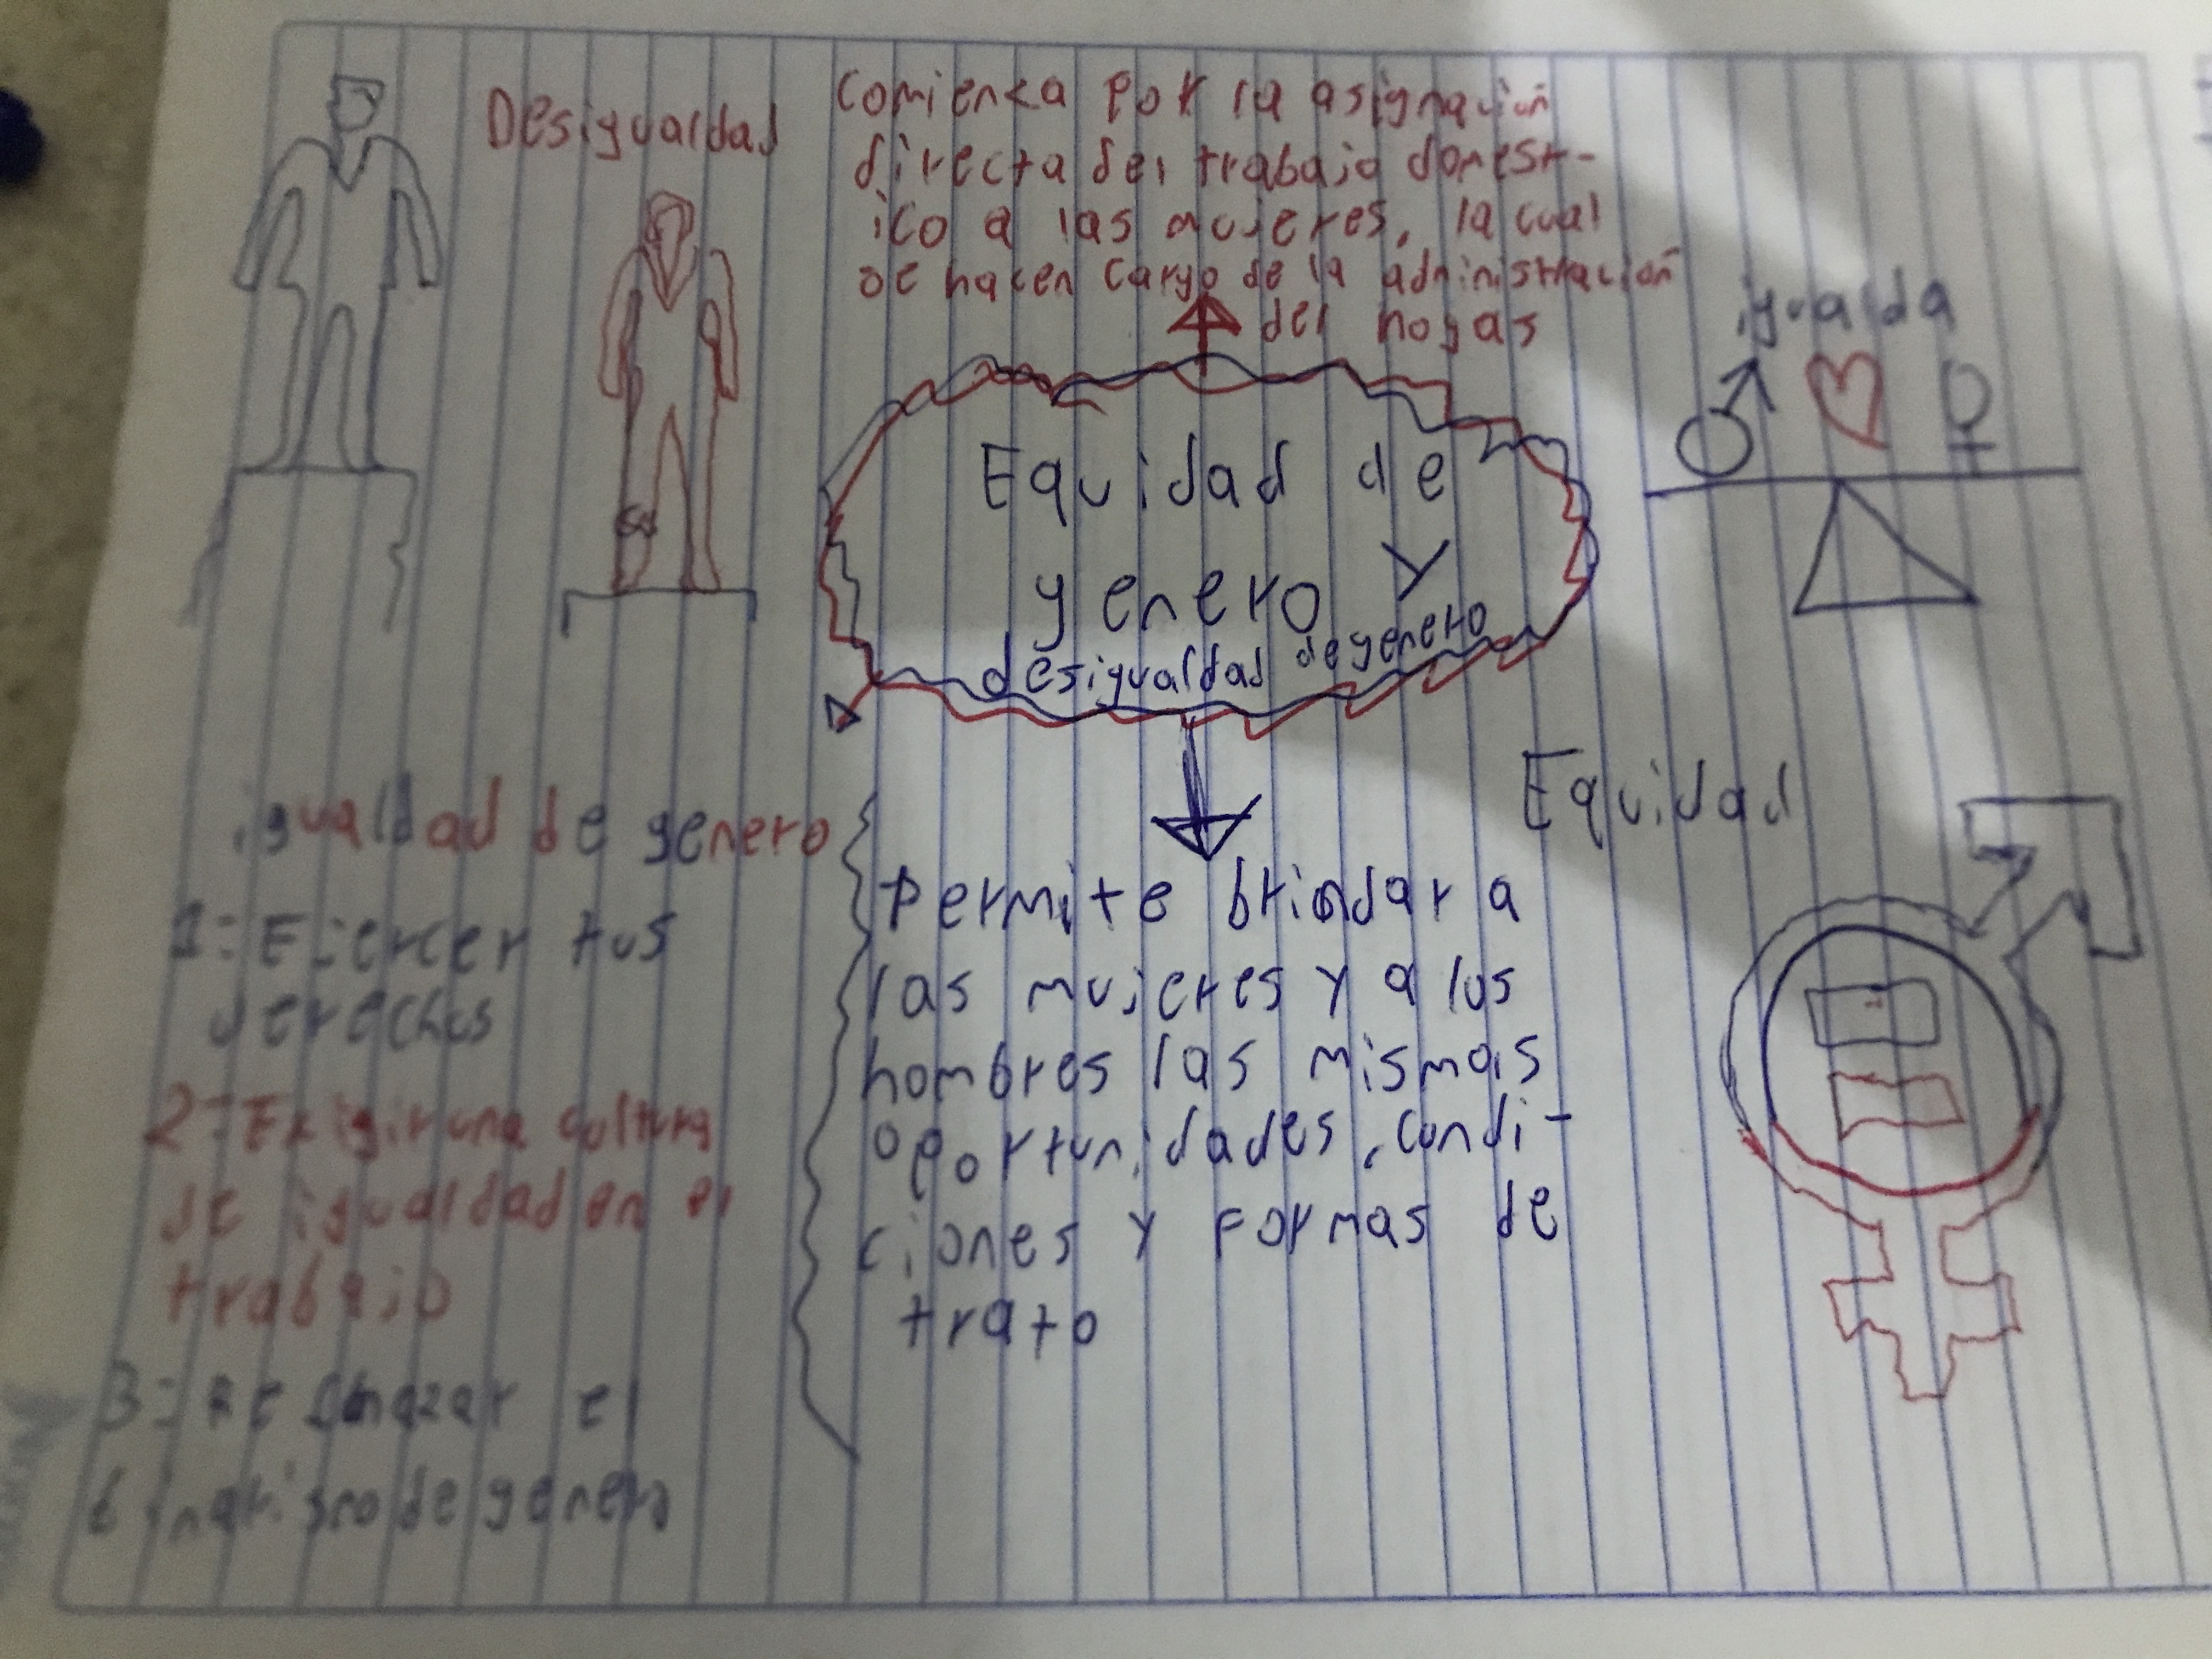 Desigualdad
comienza por la asignación
directa del trabajo domest-
ico a las mujeres, la cual
se hacen cargo de la administración
del hogas
igualda
Equidad de
genero y
desigualdad de genero
Equidad
igualdad de genero
1= Ejercer tus
derechos
2= Exigir una cultura
de igualdad en el
trabajo
3= el
de genero
Permite brindar a
las mujeres y a los
hombres las mismas
oportunidades, condi-
ciones y formas de
trato